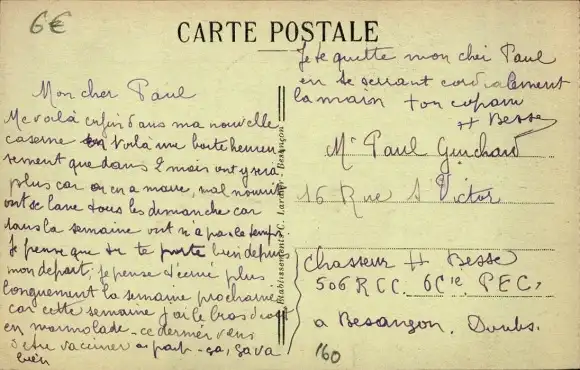 6€
CARTE POSTALE
Mon cher Paul
Me voilà enfin dans ma nouvelle
caserne en voilà une boite heureu
sement que dans 2 mois ont y sera
plus car on en a marre, mal nourrit
ont se lave tous les demanche car
tous la semaine ont n'a pas le temps
Je pense que tu te porte bien depuis
mon départ, je pense t'écrire plus
longuement la semaine prochaine
car cette semaine j'ai le bras droit
en marmolade - ce dernier vient
d'etre vacciner a part - ça, ça va
bien
Je te quitte mon cher Paul
en te serrant cordialement
la main ton copain
H Besse
Etablissements C. Lardier - Besançon
Mr Paul Guichard
16 Rue St Victor
Chasseur H Besse
506 RCC. 6Cie. PEC,
a Besançon. Doubs.
160